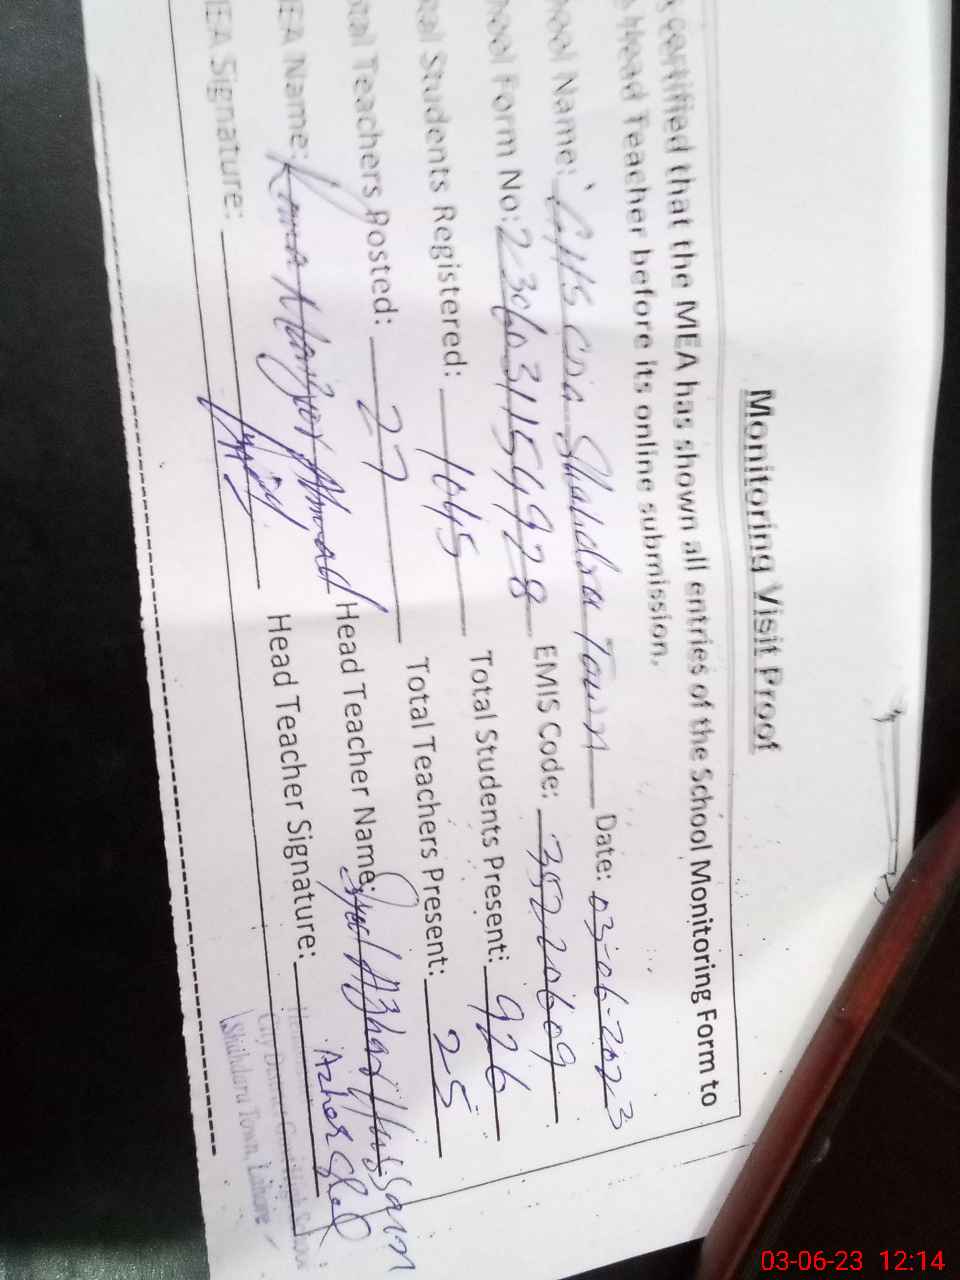 Monitoring Visit Proof
certified that the MEA has shown all entries of the School Monitoring Form to
Head Teacher before its online submission.
ool Name: GHS CDG Shahdra Town Date: 03-06-2023
hool Form No: 2306031154928 EMIS Code: 35220609
al Students Registered: 1045 Total Students Present: 926
tal Teachers Posted: 27 Total Teachers Present: 25
EA Name: Rana Manzoor Ahmad Head Teacher Name: Syed Azhar Hussain
EA Signature: Head Teacher Signature: Azher
Shahdara Town, Lahore
03-06-23 12:14